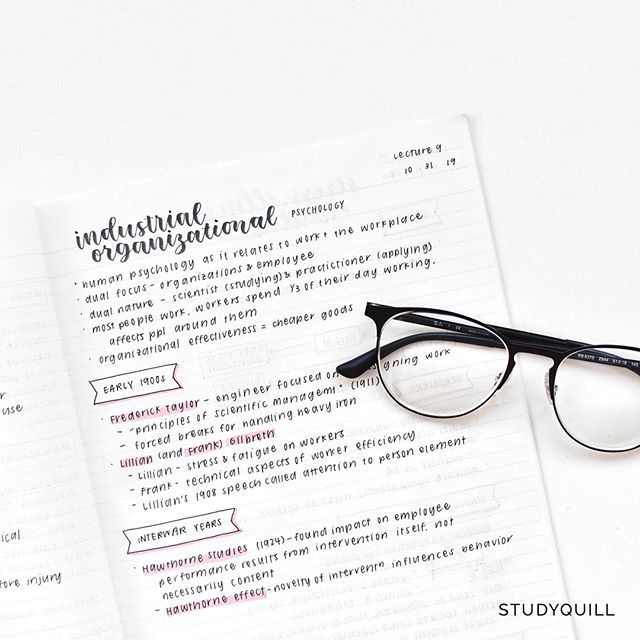 Lecture 9
10 31 19
industrial
organizational PSYCHOLOGY
· human psychology as it relates to work + the workplace
· dual focus - organizations & employee
· dual nature - scientist (studying) & practictioner (applying)
· most people work, workers spend 1/3 of their day working,
affects ppl around them
· organizational effectiveness = cheaper goods
EARLY 1900s
· Frederick Taylor - engineer focused on designing work
- "principles of scientific managemt" (1911)
- forced breaks for handling heavy iron
· Lillian (and Frank) Gilbreth
- Lillian - stress & fatigue on workers
- Frank - technical aspects of worker efficiency
- Lillian's 1908 speech called attention to person element
INTERWAR YEARS
· Hawthorne Studies (1924) - found impact on employee
performance results from intervention itself, not
necessarily content
- Hawthorne effect - novelty of interventn influences behavior
use
ical
fore injury
STUDYQUILL